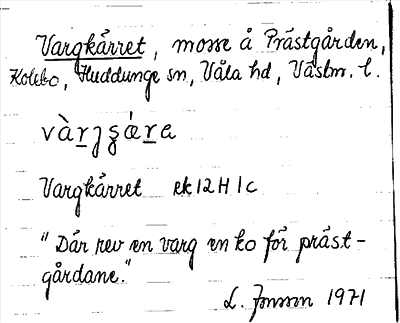 Vargkärret, mosse å Prästgården,
Kolebo, Huddunge sn, Våla hd, Västm. l.
vàrjȿǽra
Vargkärret ek 12 H 1 c
"Där rev en varg en ko för präst-
gårdane."
L. Jonsson 1971